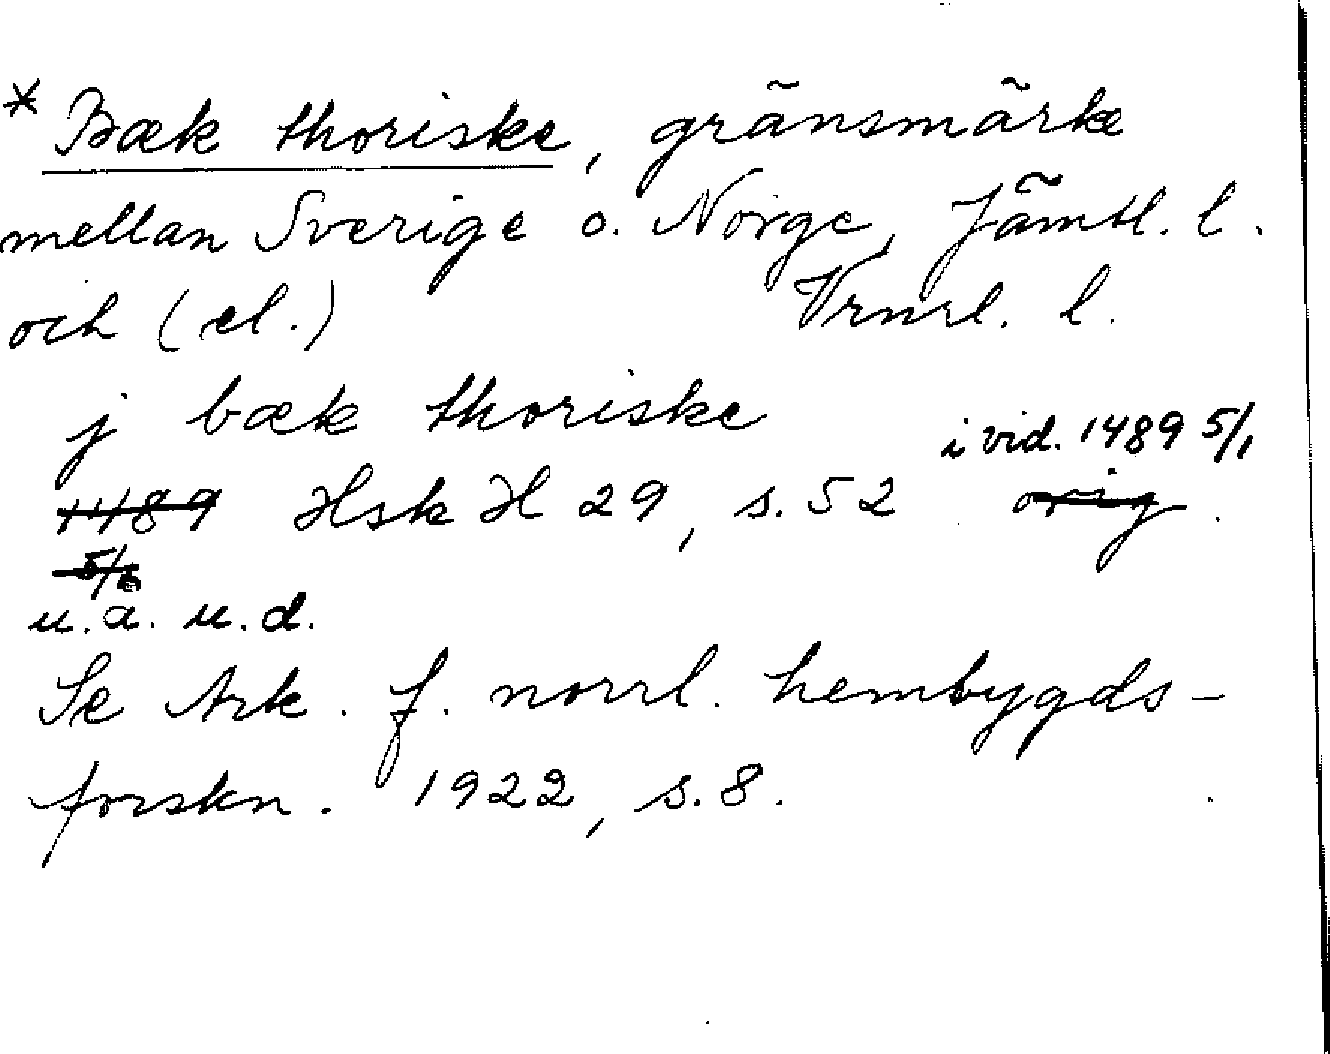 * Bæk thoriske, gränsmärke
mellan Sverige o. Norge, Jämtl. l.
och (el.) Vrml. l.
j bæk thoriske
i vid. 1489 5/1
1489 Hsk H 29, s. 52 orig.
5/6
u.a. u.d.
Se Ark. f. norrl. hembygds-
forskn. 1922, s. 8.